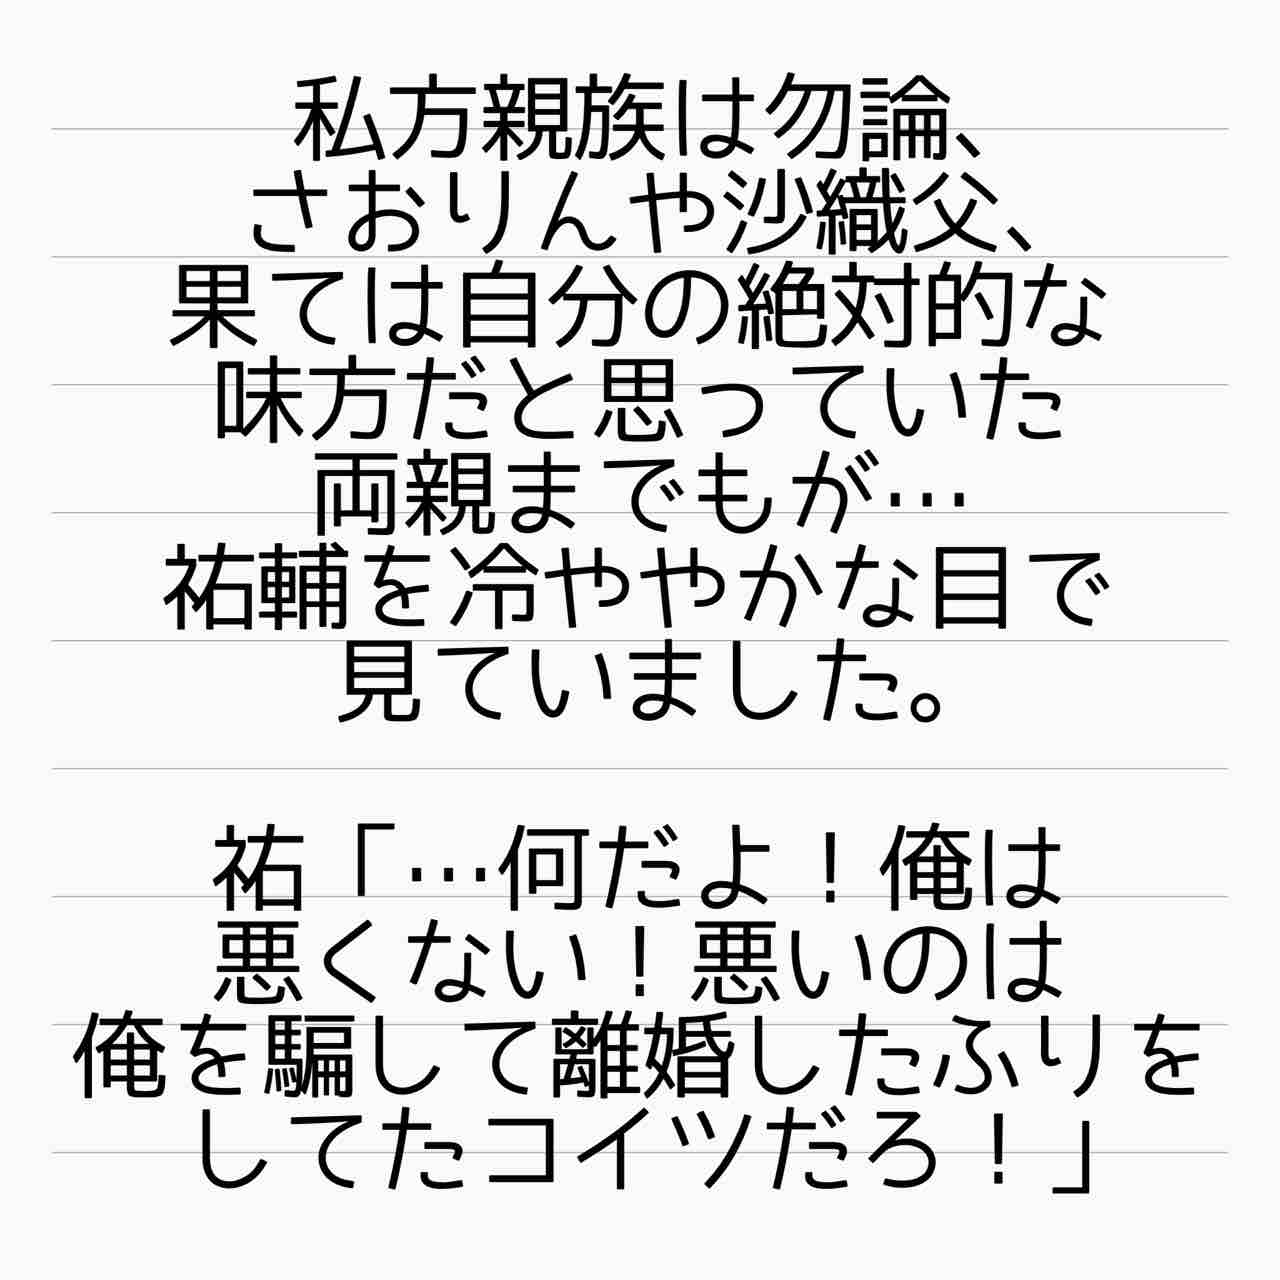 私方親族は勿論、
さおりんや沙織父、
果ては自分の絶対的な
味方だと思っていた
両親までもが…
祐輔を冷ややかな目で
見ていました。
祐「…何だよ！俺は
悪くない！悪いのは
俺を騙して離婚したふりを
してたコイツだろ！」